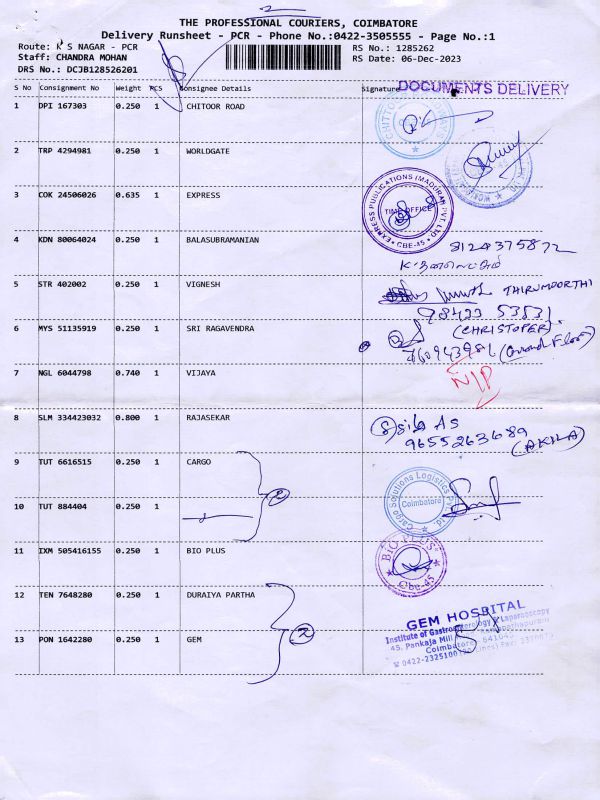 2
THE PROFESSIONAL COURIERS, COIMBATORE
Delivery Runsheet - PCR - Phone No.:0422-3505555 - Page No.:1
Route: K S NAGAR - PCR
RS No.: 1285262
Staff: CHANDRA MOHAN
RS Date: 06-Dec-2023
DRS No.: DCJB128526201
S No Consignment No Weight PCS Consignee Details Signature
DOCUMENTS DELIVERY
1 DPI 167303 0.250 1 CHITOOR ROAD
2 TRP 4294981 0.250 1 WORLDGATE
3 COK 24506026 0.635 1 EXPRESS
EXPRESS PUBLICATIONS (MADURAI) PVT. LTD
TIME OFFICE
CBE-45
4 KDN 80064024 0.250 1 BALASUBRAMANIAN
8124375872
5 STR 402002 0.250 1 VIGNESH
THIRUMOORTHI
98433 53531
6 MYS 51135919 0.250 1 SRI RAGAVENDRA
(CHRISTOPER)
(Ground Floor)
7 NGL 6044798 0.740 1 VIJAYA
N/P
8 SLM 334423032 0.800 1 RAJASEKAR
9655263689
(AKILA)
9 TUT 6616515 0.250 1 CARGO
2
Cargo Solutions Logistics Pvt. Ltd.
Coimbatore
10 TUT 884404 0.250 1
11 IXM 505416155 0.250 1 BIO PLUS
BIO PLUS
Cbe-45
12 TEN 7648280 0.250 1 DURAIYA PARTHA
2
13 PON 1642280 0.250 1 GEM
GEM HOSPITAL
Institute of Gastroenterology & Laparoscopy
45, Pankaja Mill Ramanathapuram
Coimbatore- 641045